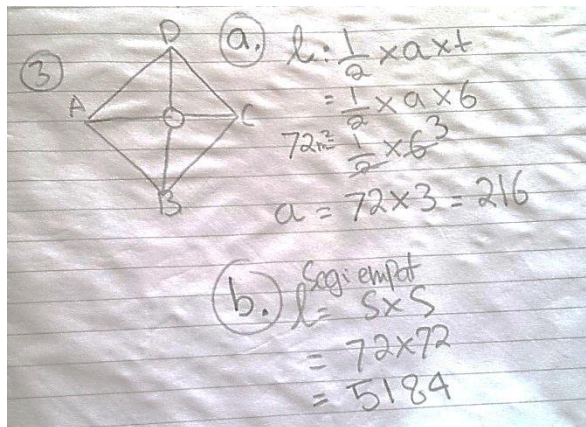 3
D
A
C
B
a. L: 1/2 x a x t
= 1/2 x a x 6
72m² = 1/2 x 6 3
a = 72 x 3 = 216
b. Segiempat
L = S x S
= 72 x 72
= 5184